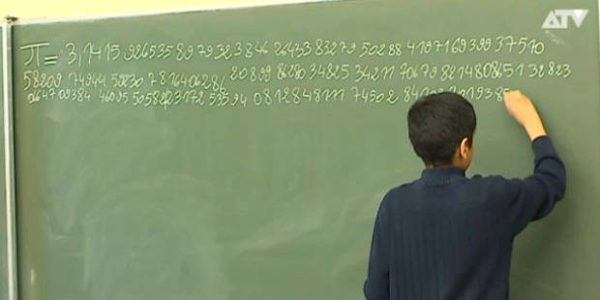 ATV
π = 3,1415 926535 89 79 323846 264338 3279 50288 4197169399 37510
58209 74944 59230 78164062 86 20899 86280 34825 34211 70679 8214808651 32823
0664709384 46095 5058223172 53594 0812848111 74502